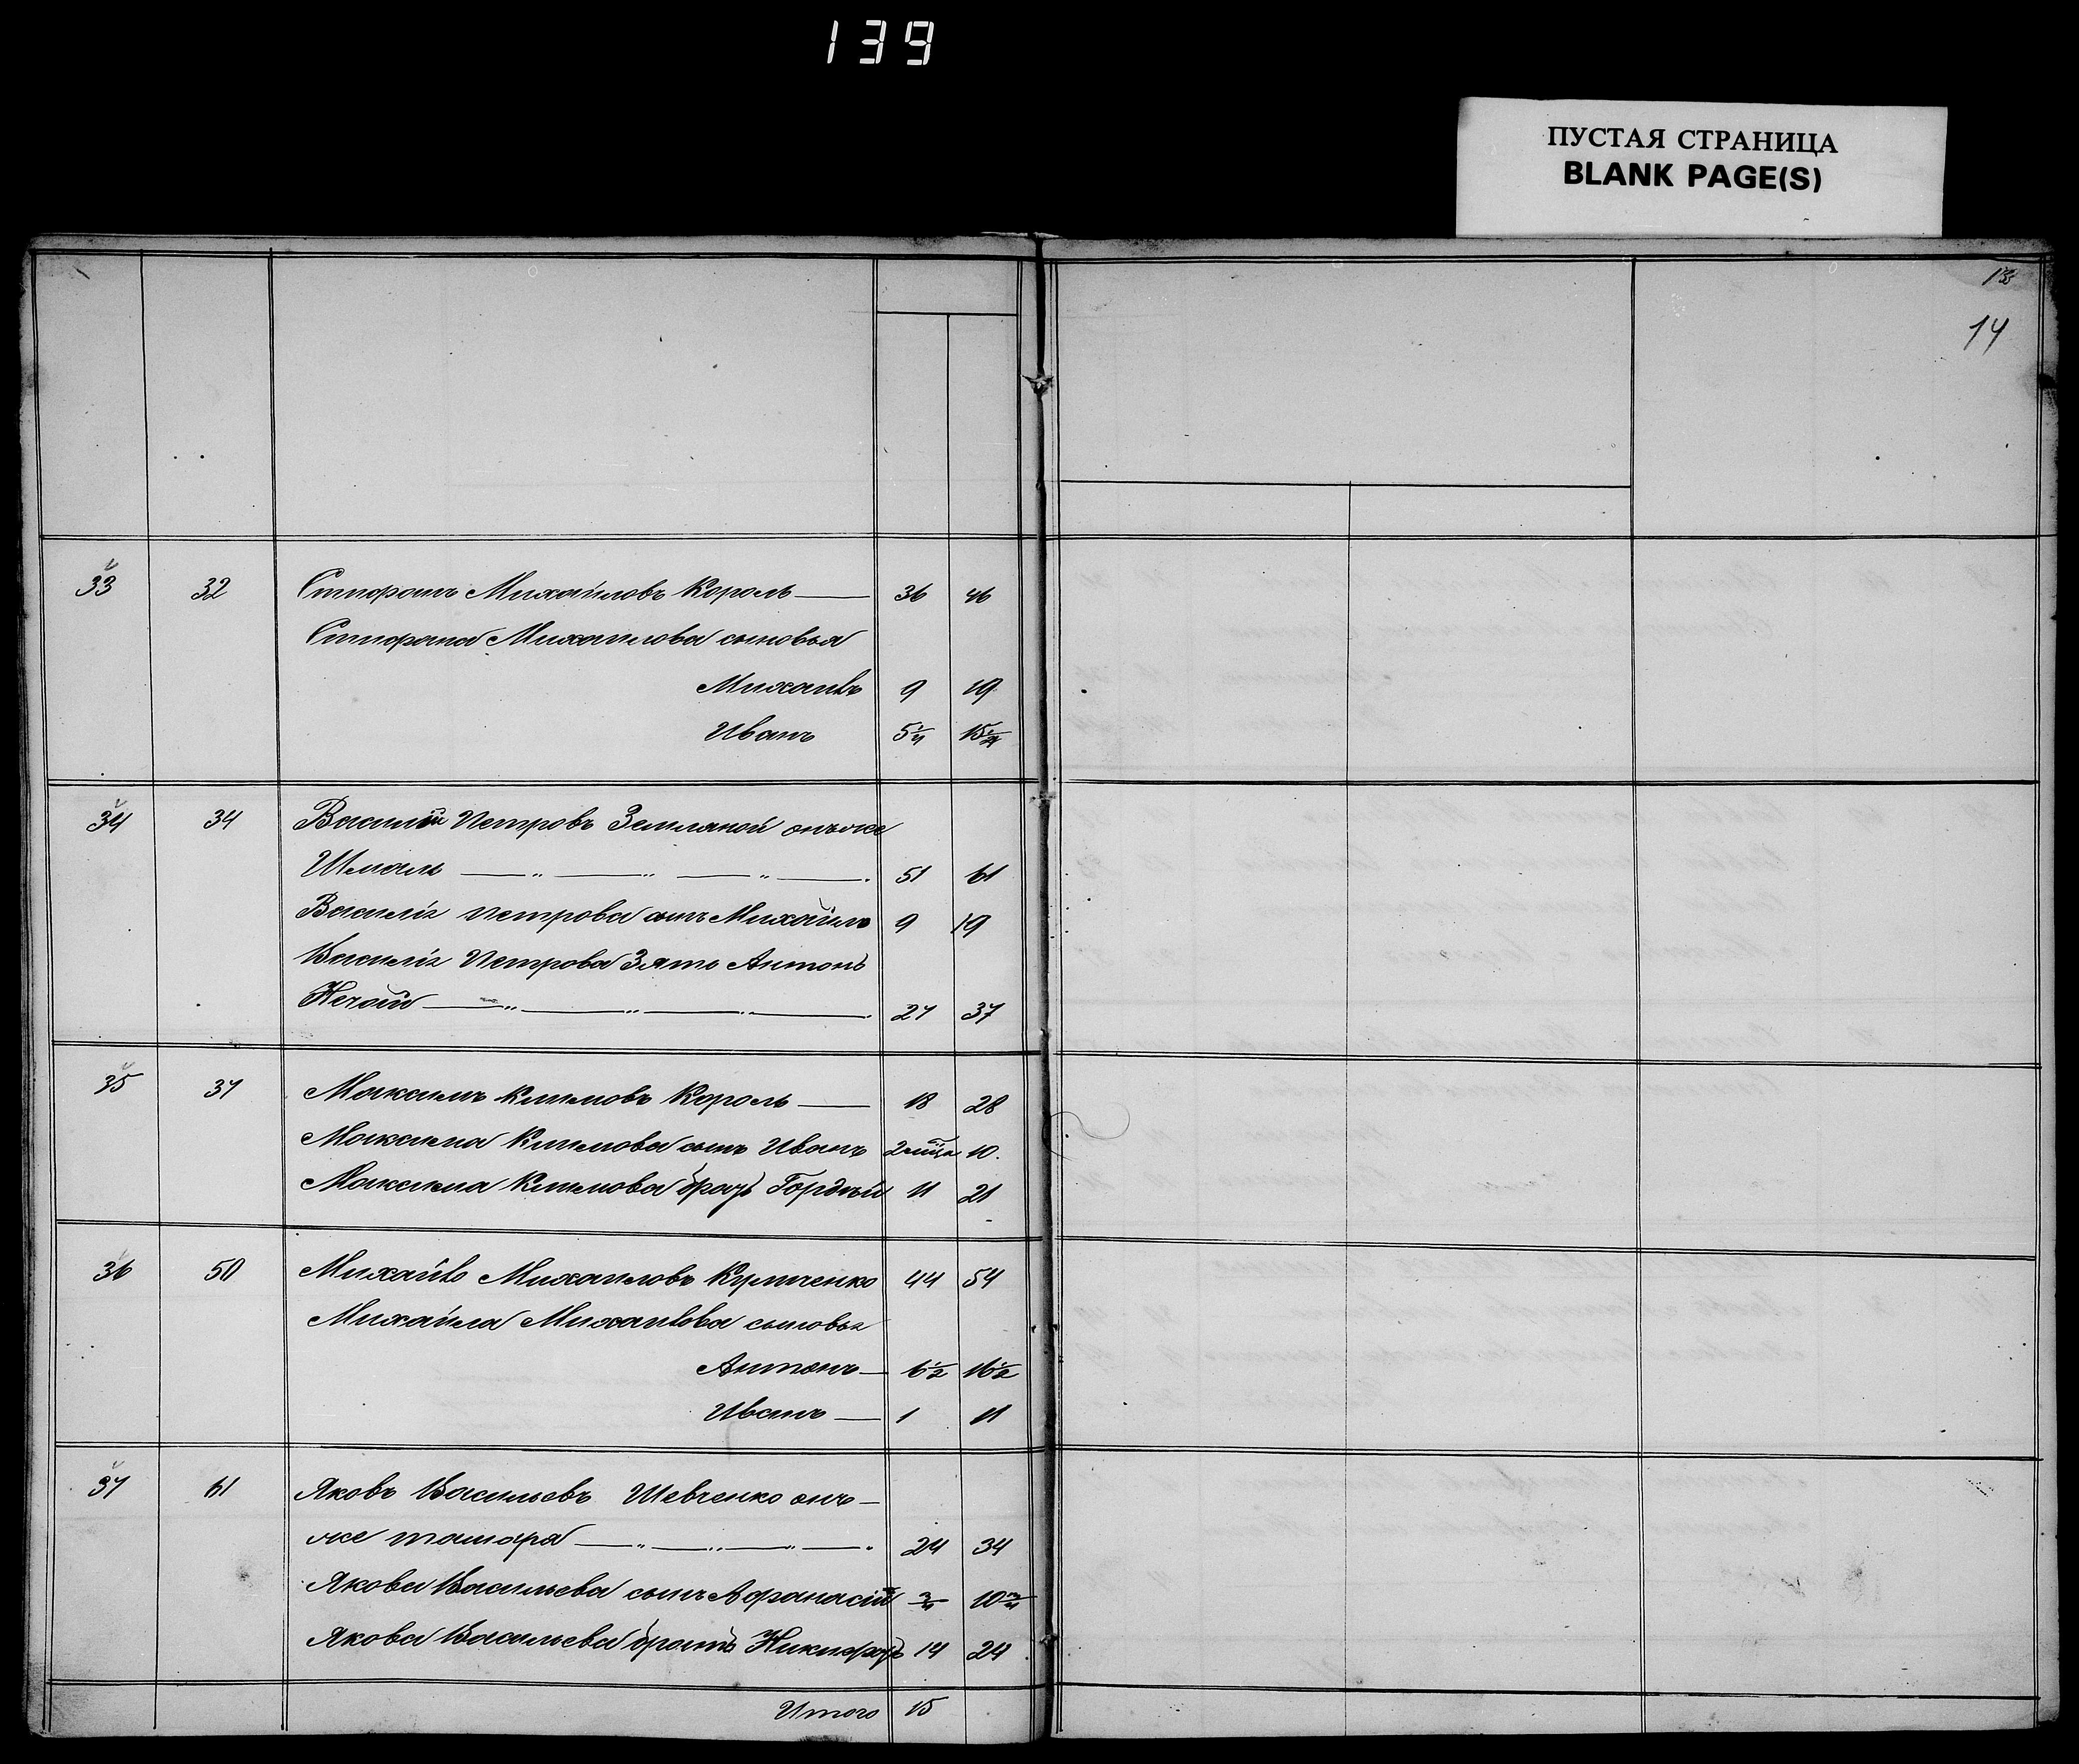 139
ПУСТАЯ СТРАНИЦА
BLANK PAGE(S)
13
14
33 32 Стифанъ Михайловъ Король 36 46
Стифана Михаилова сыновья
Михаилъ 9 19
Иванъ 5 1/4 15 1/4
34 34 Василий Петровъ Земляной онъ же
Шмаль 51 61
Василія Петрова сынъ Михаилъ 9 19
Василія Петрова Зять Антонъ
Нечай 27 37
35 37 Максимъ Климовъ Король 18 28
Максима Климова сынъ Иванъ 2 мца 10.
Максима Климова братъ Гордѣй 11 21
36 50 Михаилъ Михаиловъ 44 54
Михаила Михаилова сыновья
Антонъ 6 1/2 16 1/2
Иванъ 1 11
37 61 Яковъ Васильевъ Шевченко онъ
же 24 34
Якова Васильева сынъ Афанасій 3/4 10 3/4
Якова Васильева братъ Никифоръ 14 24
Итого 15